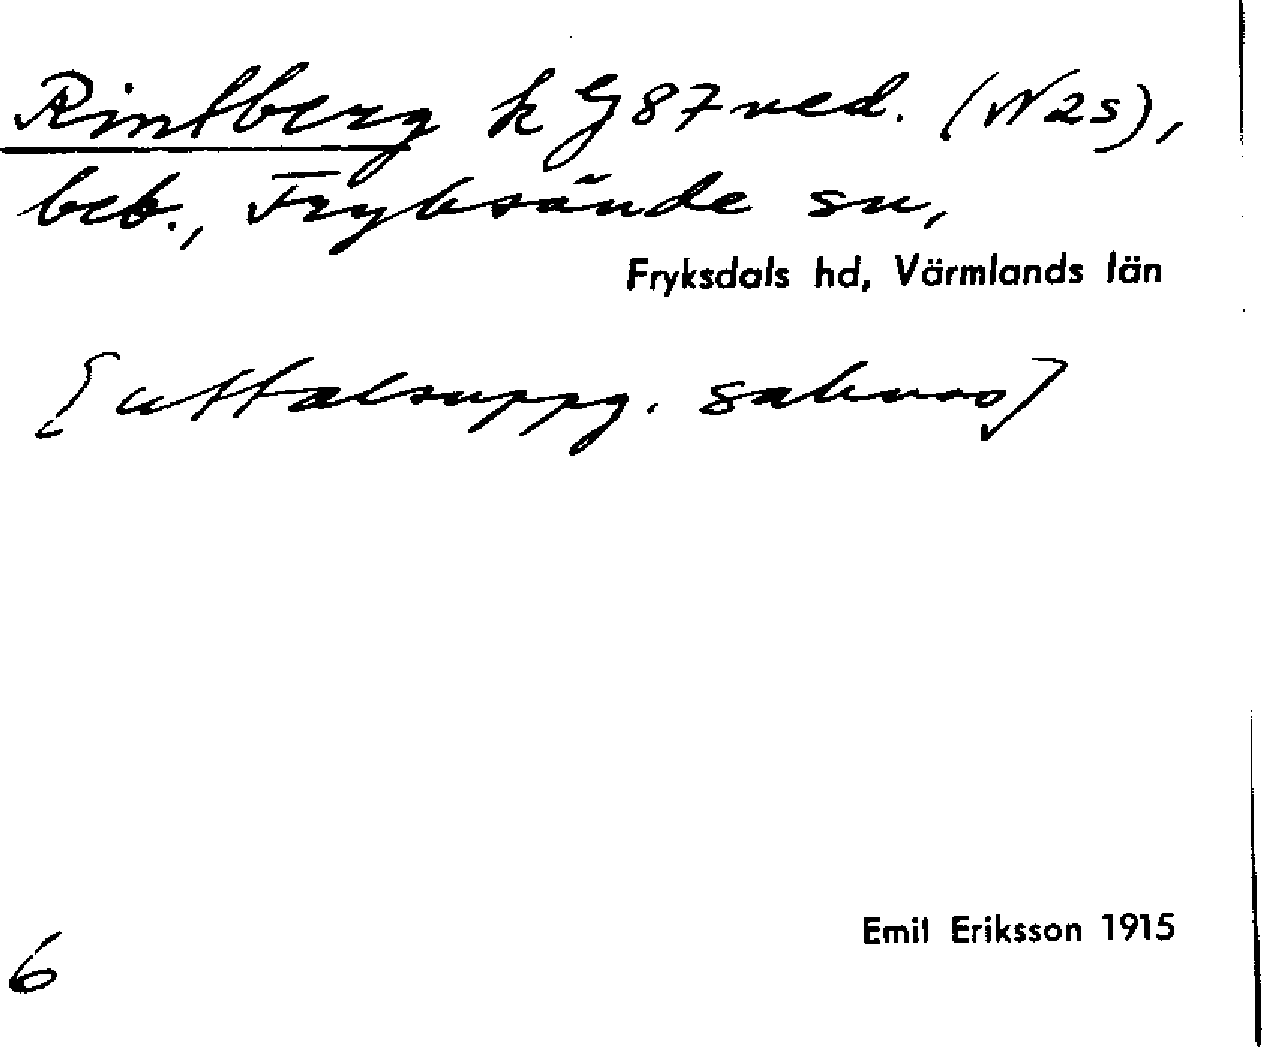 Rintberg k G 87 ned. (N2s),
beb., Fryksände sn,
Fryksdals hd, Värmlands län
[uttalsuppg. saknas]
Emil Eriksson 1915
6